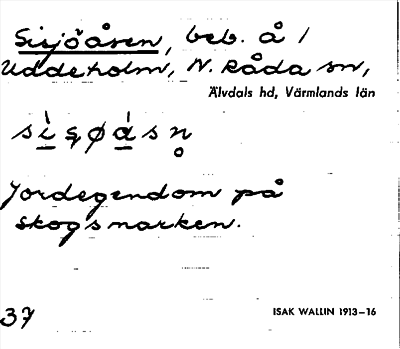 Sisjöåsen, beb. å /
Uddeholm, N. Råda sn,
Älvdals hd, Värmlands län
Jordegendom på
skogsmarken.
37
ISAK WALLIN 1913–16